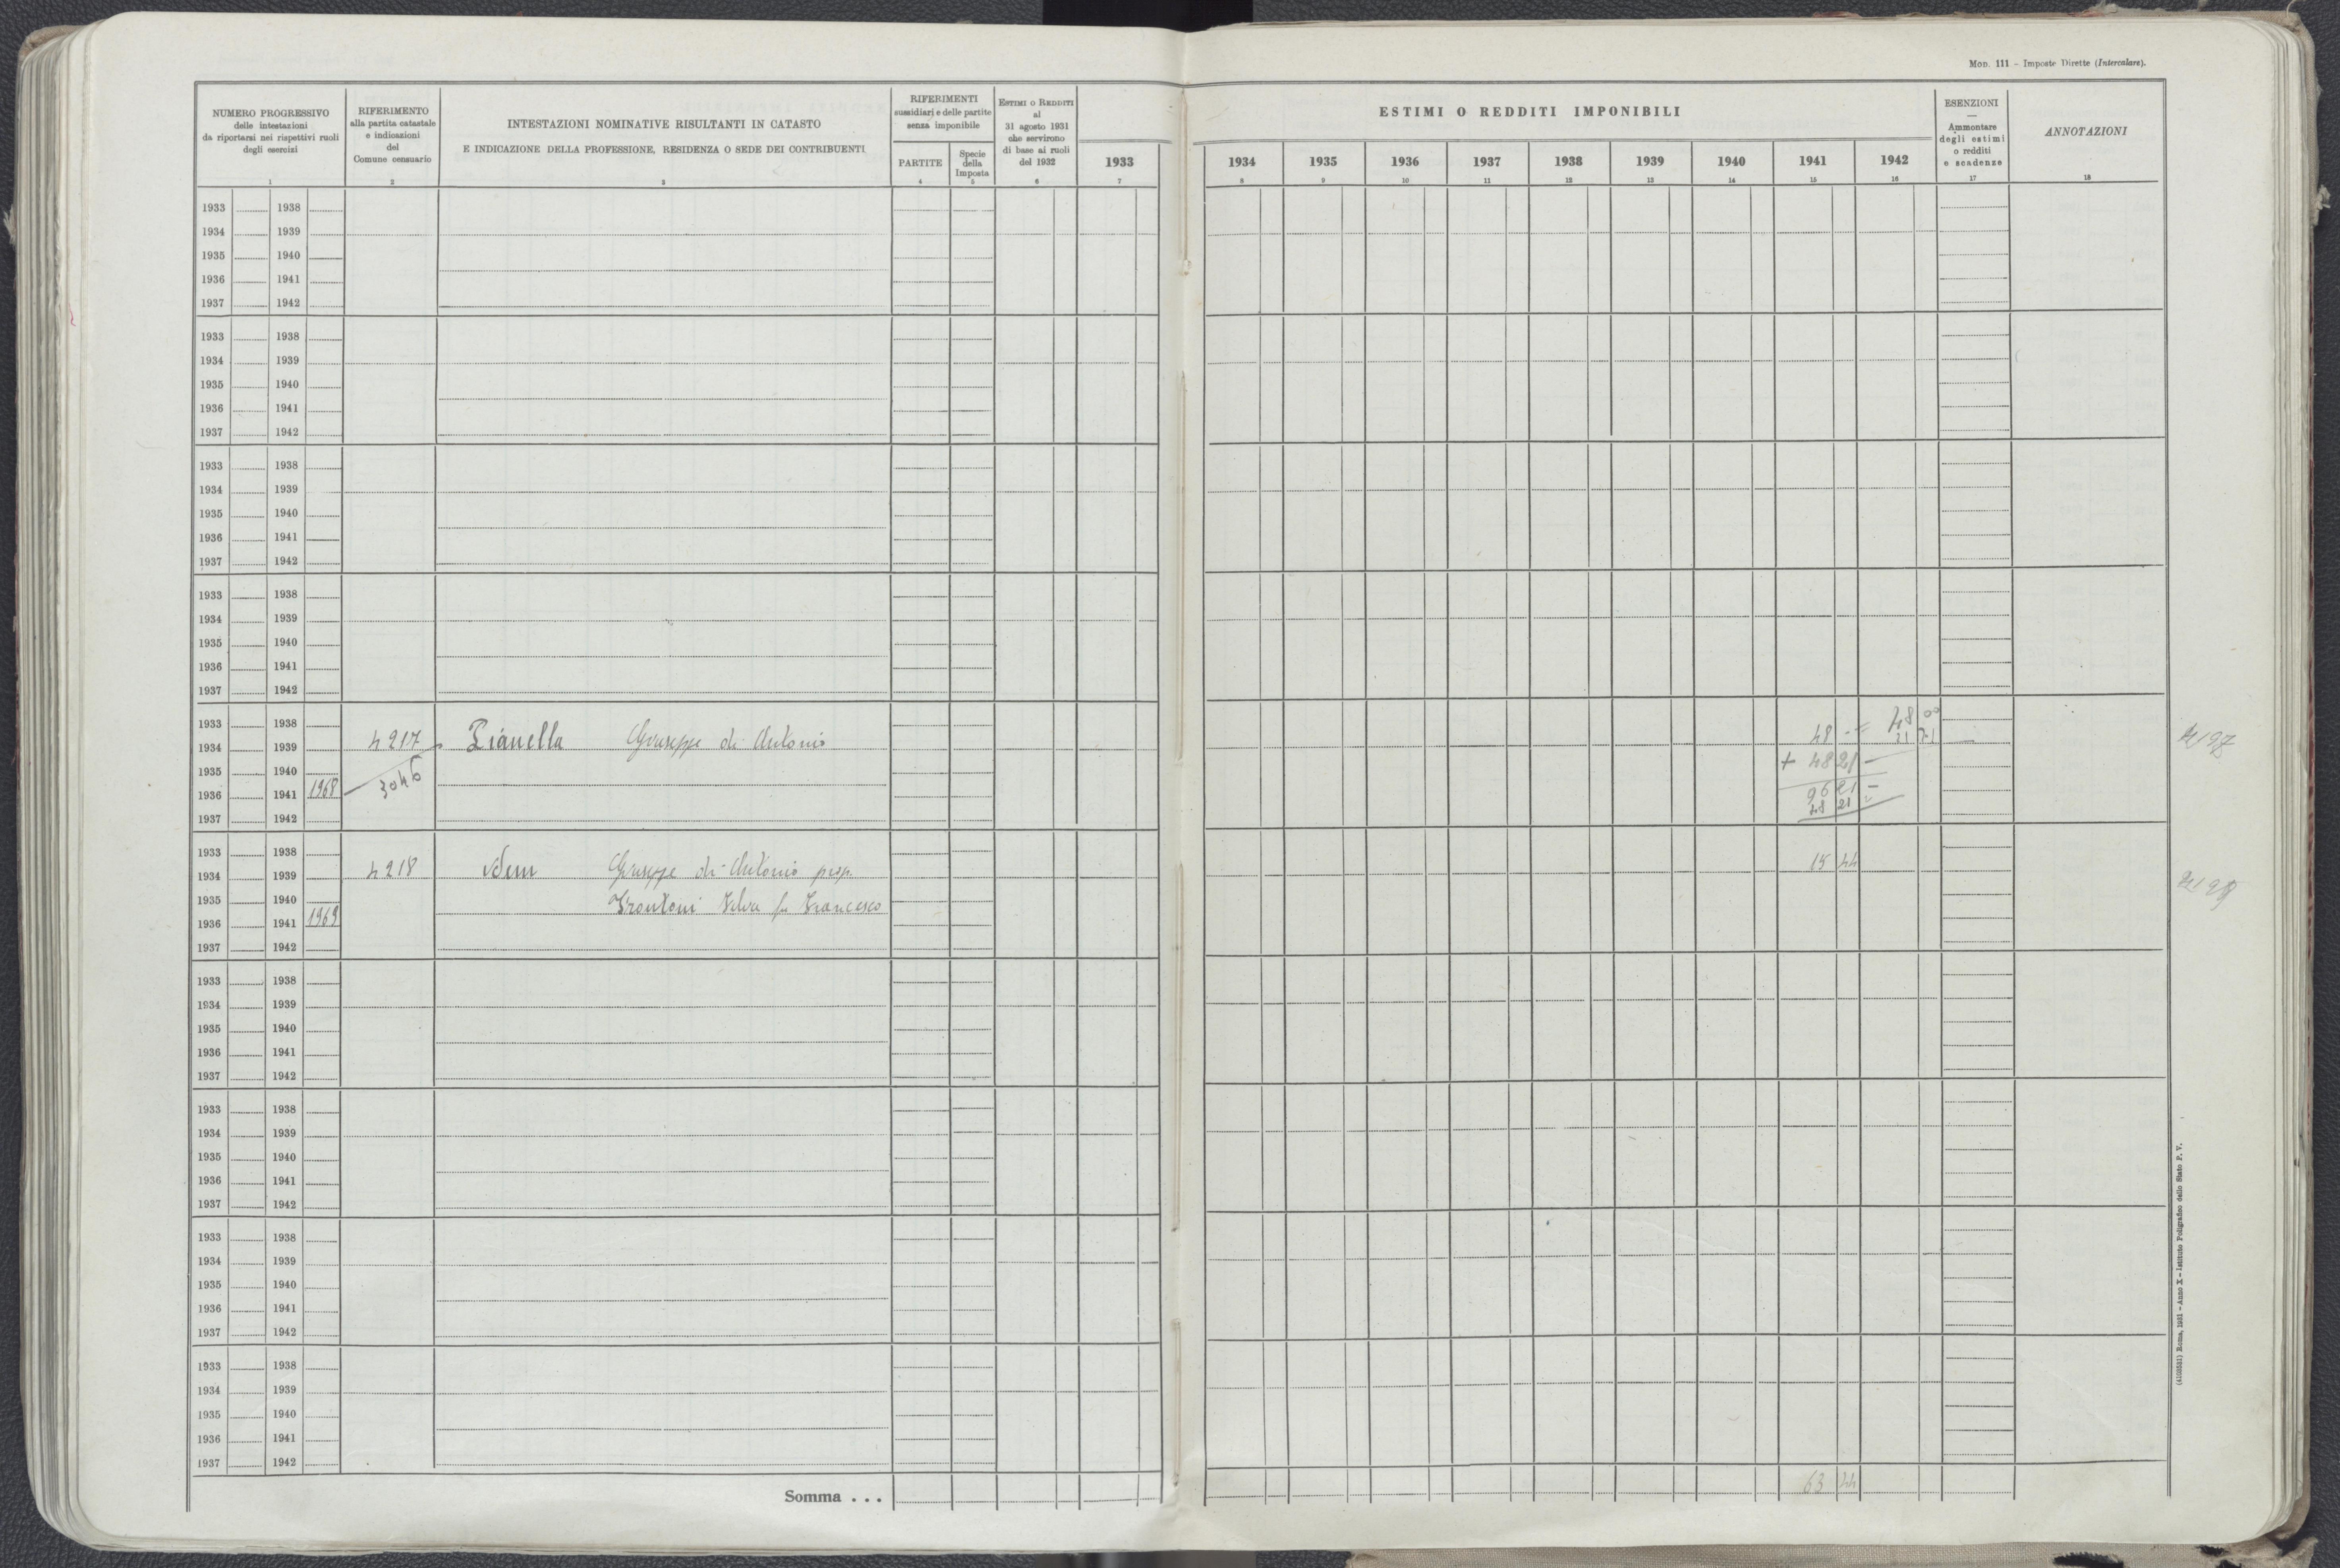 Mod. 111 – Imposte Dirette (Intercalare).
NUMERO PROGRESSIVO
delle intestazioni
da riportarsi nei rispettivi ruoli
degli esercizi
1
RIFERIMENTO
alla partita catastale
e indicazioni
del
Comune censuario
2
INTESTAZIONI NOMINATIVE RISULTANTI IN CATASTO
E INDICAZIONE DELLA PROFESSIONE, RESIDENZA O SEDE DEI CONTRIBUENTI
3
RIFERIMENTI
sussidiari e delle partite
senza imponibile
PARTITE
4
Specie
della
Imposta
5
Estimi o Redditi
al
31 agosto 1931
che servirono
di base ai ruoli
del 1932
6
ESTIMI O REDDITI IMPONIBILI
1933 1934 1935 1936 1937 1938 1939 1940 1941 1942
7 8 9 10 11 12 13 14 15 16
ESENZIONI
—
Ammontare
degli estimi
o redditi
e scadenze
17
ANNOTAZIONI
18
1933 1938
1934 1939
1935 1940
1936 1941
1937 1942
1933 1938
1934 1939
1935 1940
1936 1941
1937 1942
1933 1938
1934 1939
1935 1940
1936 1941
1937 1942
1933 1938
1934 1939
1935 1940
1936 1941
1937 1942
1933 1938 48 00
1934 1939 4217 Pianella Giuseppe di Antonio 48 - = 21 71
1935 1940 3046 + 48 21 —
1936 1941 1968 96 21 —
1937 1942 48 21
1933 1938
1934 1939 4218 Idem Giuseppe di Antonio prop. 15 44
1935 1940 Trontoni Silva fu Francesco
1936 1941 1969
1937 1942
1933 1938
1934 1939
1935 1940
1936 1941
1937 1942
1933 1938
1934 1939
1935 1940
1936 1941
1937 1942
1933 1938
1934 1939
1935 1940
1936 1941
1937 1942
1933 1938
1934 1939
1935 1940
1936 1941
1937 1942
Somma . . . 63 44
(4103531) Roma, 1931 – Anno X – Istituto Poligrafico dello Stato P. V.